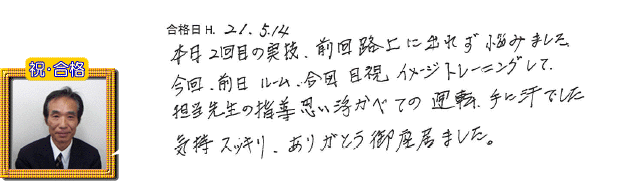 合格日 H. 21.5.14
祝・合格
本日2回目の実技、前回路上に出れず悩みました。
今回、前日ルーム、今回目視イメージトレーニングして、
担当先生の指導思い浮かべての運転、手に汗でした
気持スッキリ、ありがとう御座居ました。